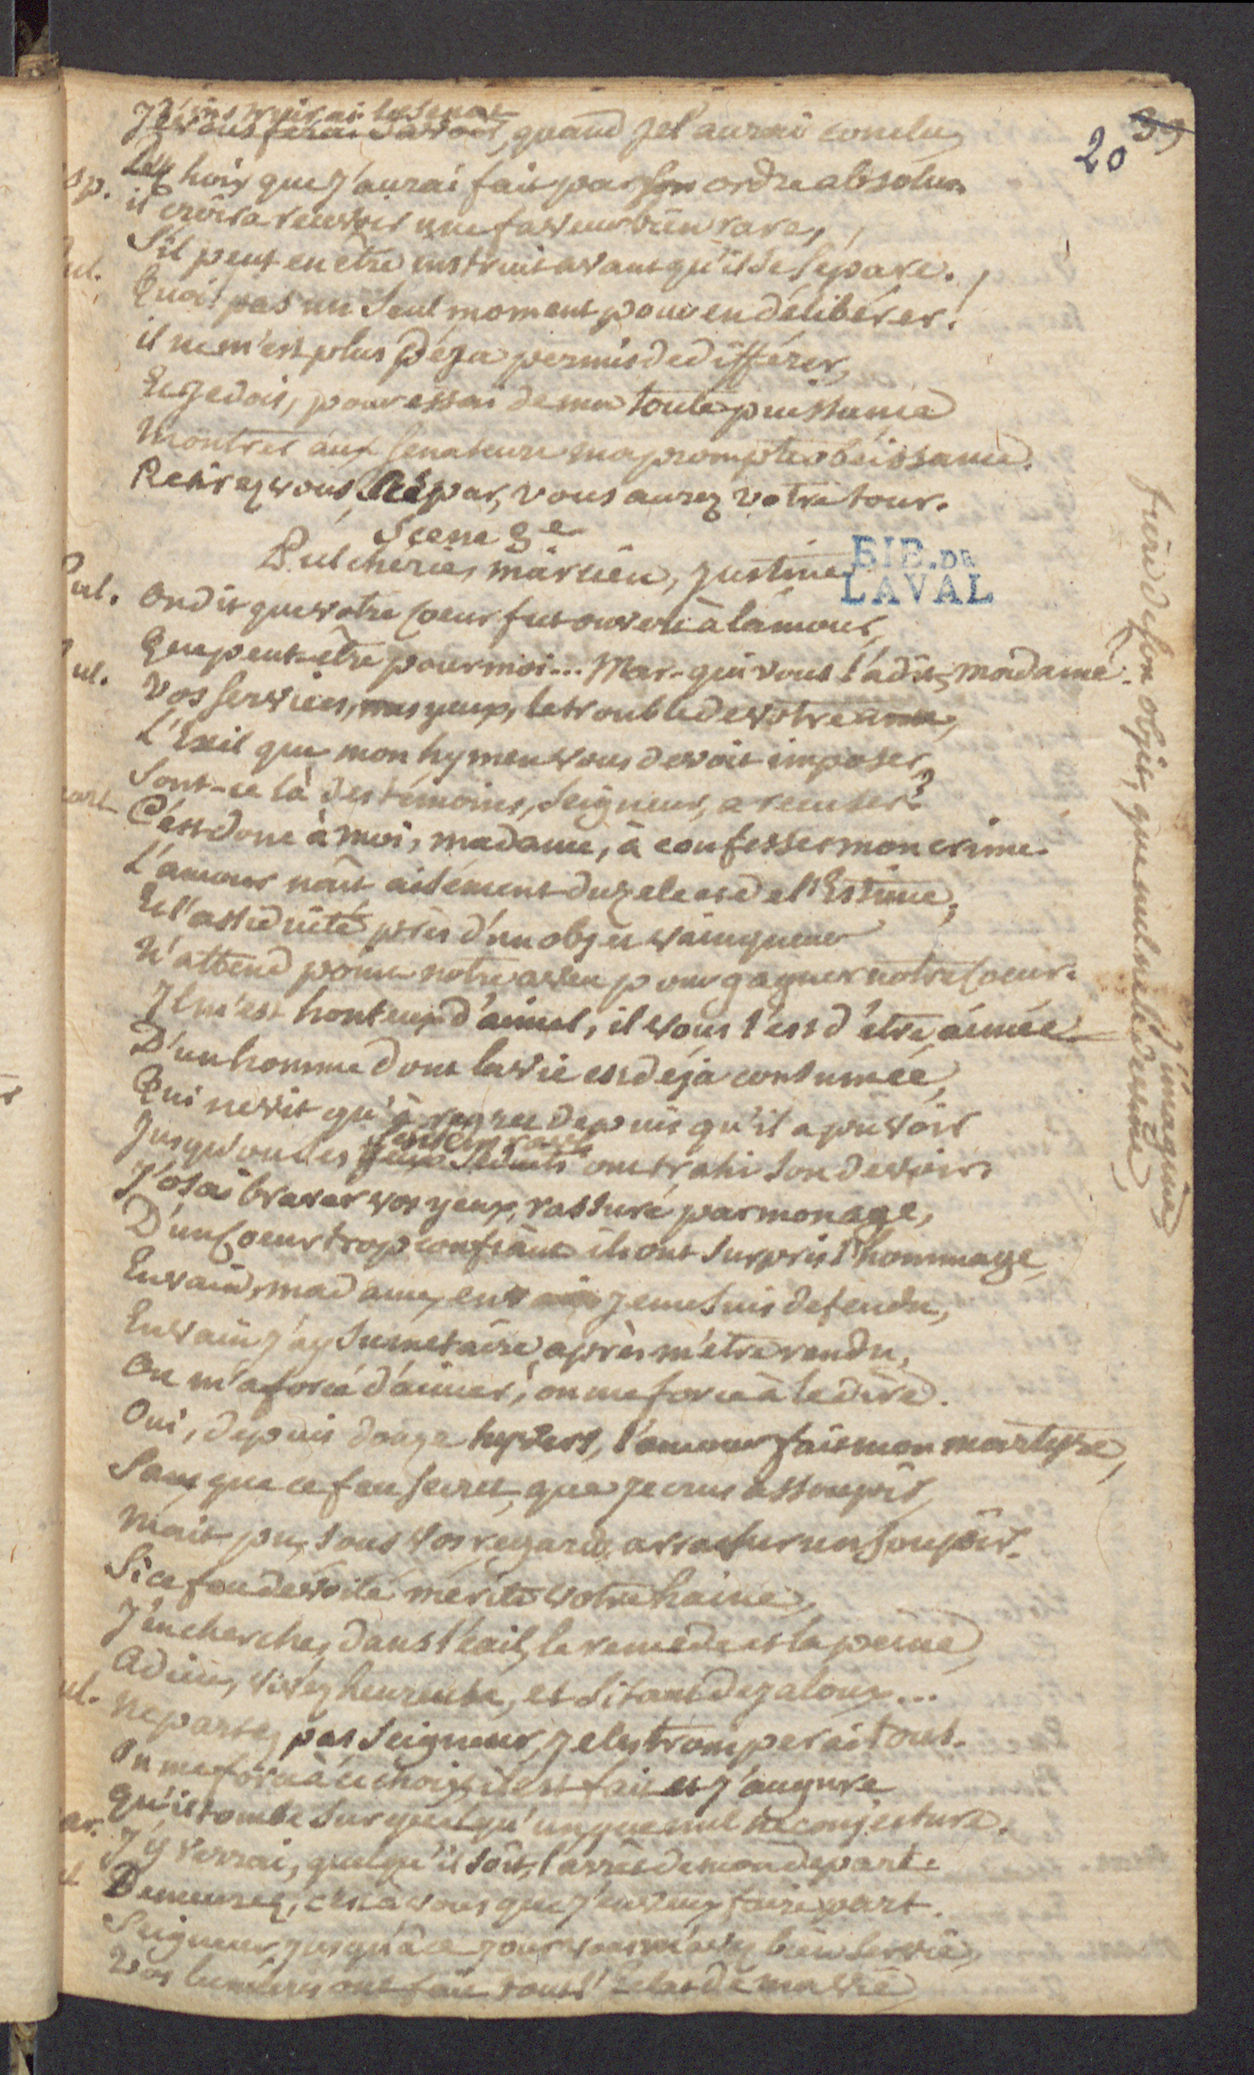 20 39
J'instruirai le senat
Je vous ferai savoir, quand je l'aurai conclu,
Du choix que j'aurai fait par son ordre absolu.
sp. il croira recevoir une faveur bien rare,
S'il peut en être instruit avant qu'il se sépare.
ul. Quoi! pas un seul moment pour en délibérer!
il ne m'est plus déja permis de différer,
Et je dois, pour essai de ma toute puissance
montrer aux senateurs ma prompte obéissance.
Retirez vous, Aspar, vous aurez votre tour.
Scene 3e
Pulcherie, marcien, justine
BIB. DE LAVAL
Pul. On dit que votre coeur fut ouvert à l'amour,
Que peut-être pour moi... Mar. qui vous l'a dit, madame.
ul. Vos services, mes yeux, le trouble de votre ame,
L'Exil que mon hymen vous devoit imposer,
Sont-ce là des témoins, Seigneur, a recuser?
art C'est donc à moi, madame, à confesser mon crime.
L'amour naît aisément du zele et de l'Estime;
Et l'assiduité près d'un objet vainqueur
N'attend point notre aveu pour gagner notre coeur.
Il m'est honteux d'aimer, il vous l'est d'être aimée
D'un homme dont la vie est déja consumée,
Qui ne vit qu'à regret depuis qu'il a pu voir
Jusqu'ou ses yeux séduits ont trahi son devoir.
J'osai braver vos yeux, rassuré par mon age,
D'un coeur trop confiant ils ont surpris l'hommage,
En vain, madame, en vain je me suis defendu,
En vain j'ay su me taire après m'être rendu,
On m'a forcé d'aimer, on me force à le dire.
Oui, depuis douze hyvers, l'amour fait mon martyre,
Sans que ce feu secret, que je crus assoupir,
Mait pu, sous vos regards, arracher un soupir.
Si ce feu devoilé mérite votre haine,
J'en cherche, dans l'exil, le remede et la peine,
Adieu, vivez heureuse, et si tant de jaloux...
ul. Ne partez pas Seigneur, je les tromperai tous.
On me force à ce choix, il est fait et j'augure
Qu'il tombe sur quelqu'un que nul ne conjecture.
ar. J'y verrai, quelqu'il soit, l'arrêt de mon depart.
ul Demeurez, c'est à vous que j'en veux faire part.
Seigneur, jusqu'à ce jour vous m'avez bien servie,
Vos lumieres ont fait tout l'Eclat de ma vie
de son objet, que nul ne l'imagine
devine,